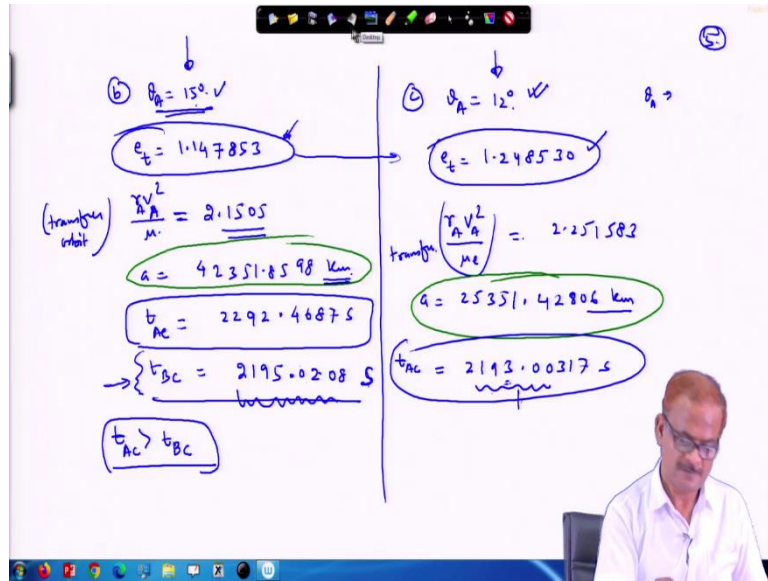 5.
(b) θ_A = 15°. ✓
e_t = 1.147853
(transfer orbit) r_A v_A^2 / μ. = 2.1505
a = 42351.8598 km.
t_AC = 2292.4687 s
t_BC = 2195.0208 s
t_AC > t_BC
(c) θ_A = 12°.
θ_A →
e_t = 1.248530 ✓
transfer. (r_A v_A^2 / μ_e) = 2.251583
a = 25351.42806 km
t_AC = 2193.00317 s
Desktop